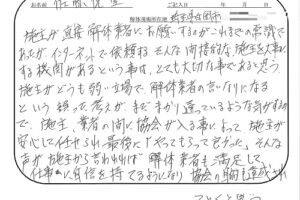 佐藤 様
ご記入日
解体現場所在地 埼玉県
施主が直接解体業者にお願いするのがこれまでの常識で
あったがインターネットで依頼する そんな間接的な施主を大事に
する機関があるという事は、とても大切な事であると思う。
施主がどうも弱い立場で、解体業者の言いなりになる
という 誤った考えが、まだまかり通っているような気がするの
で、施主、業者の間に協会が入る事によって、施主が
安心して任せられ、最後に「やってもらって良かった」そんな
声が施主から言われれば 解体業者も満足して、
仕事に自信を持てるようになり 協会の目的も達成され
ることと思う